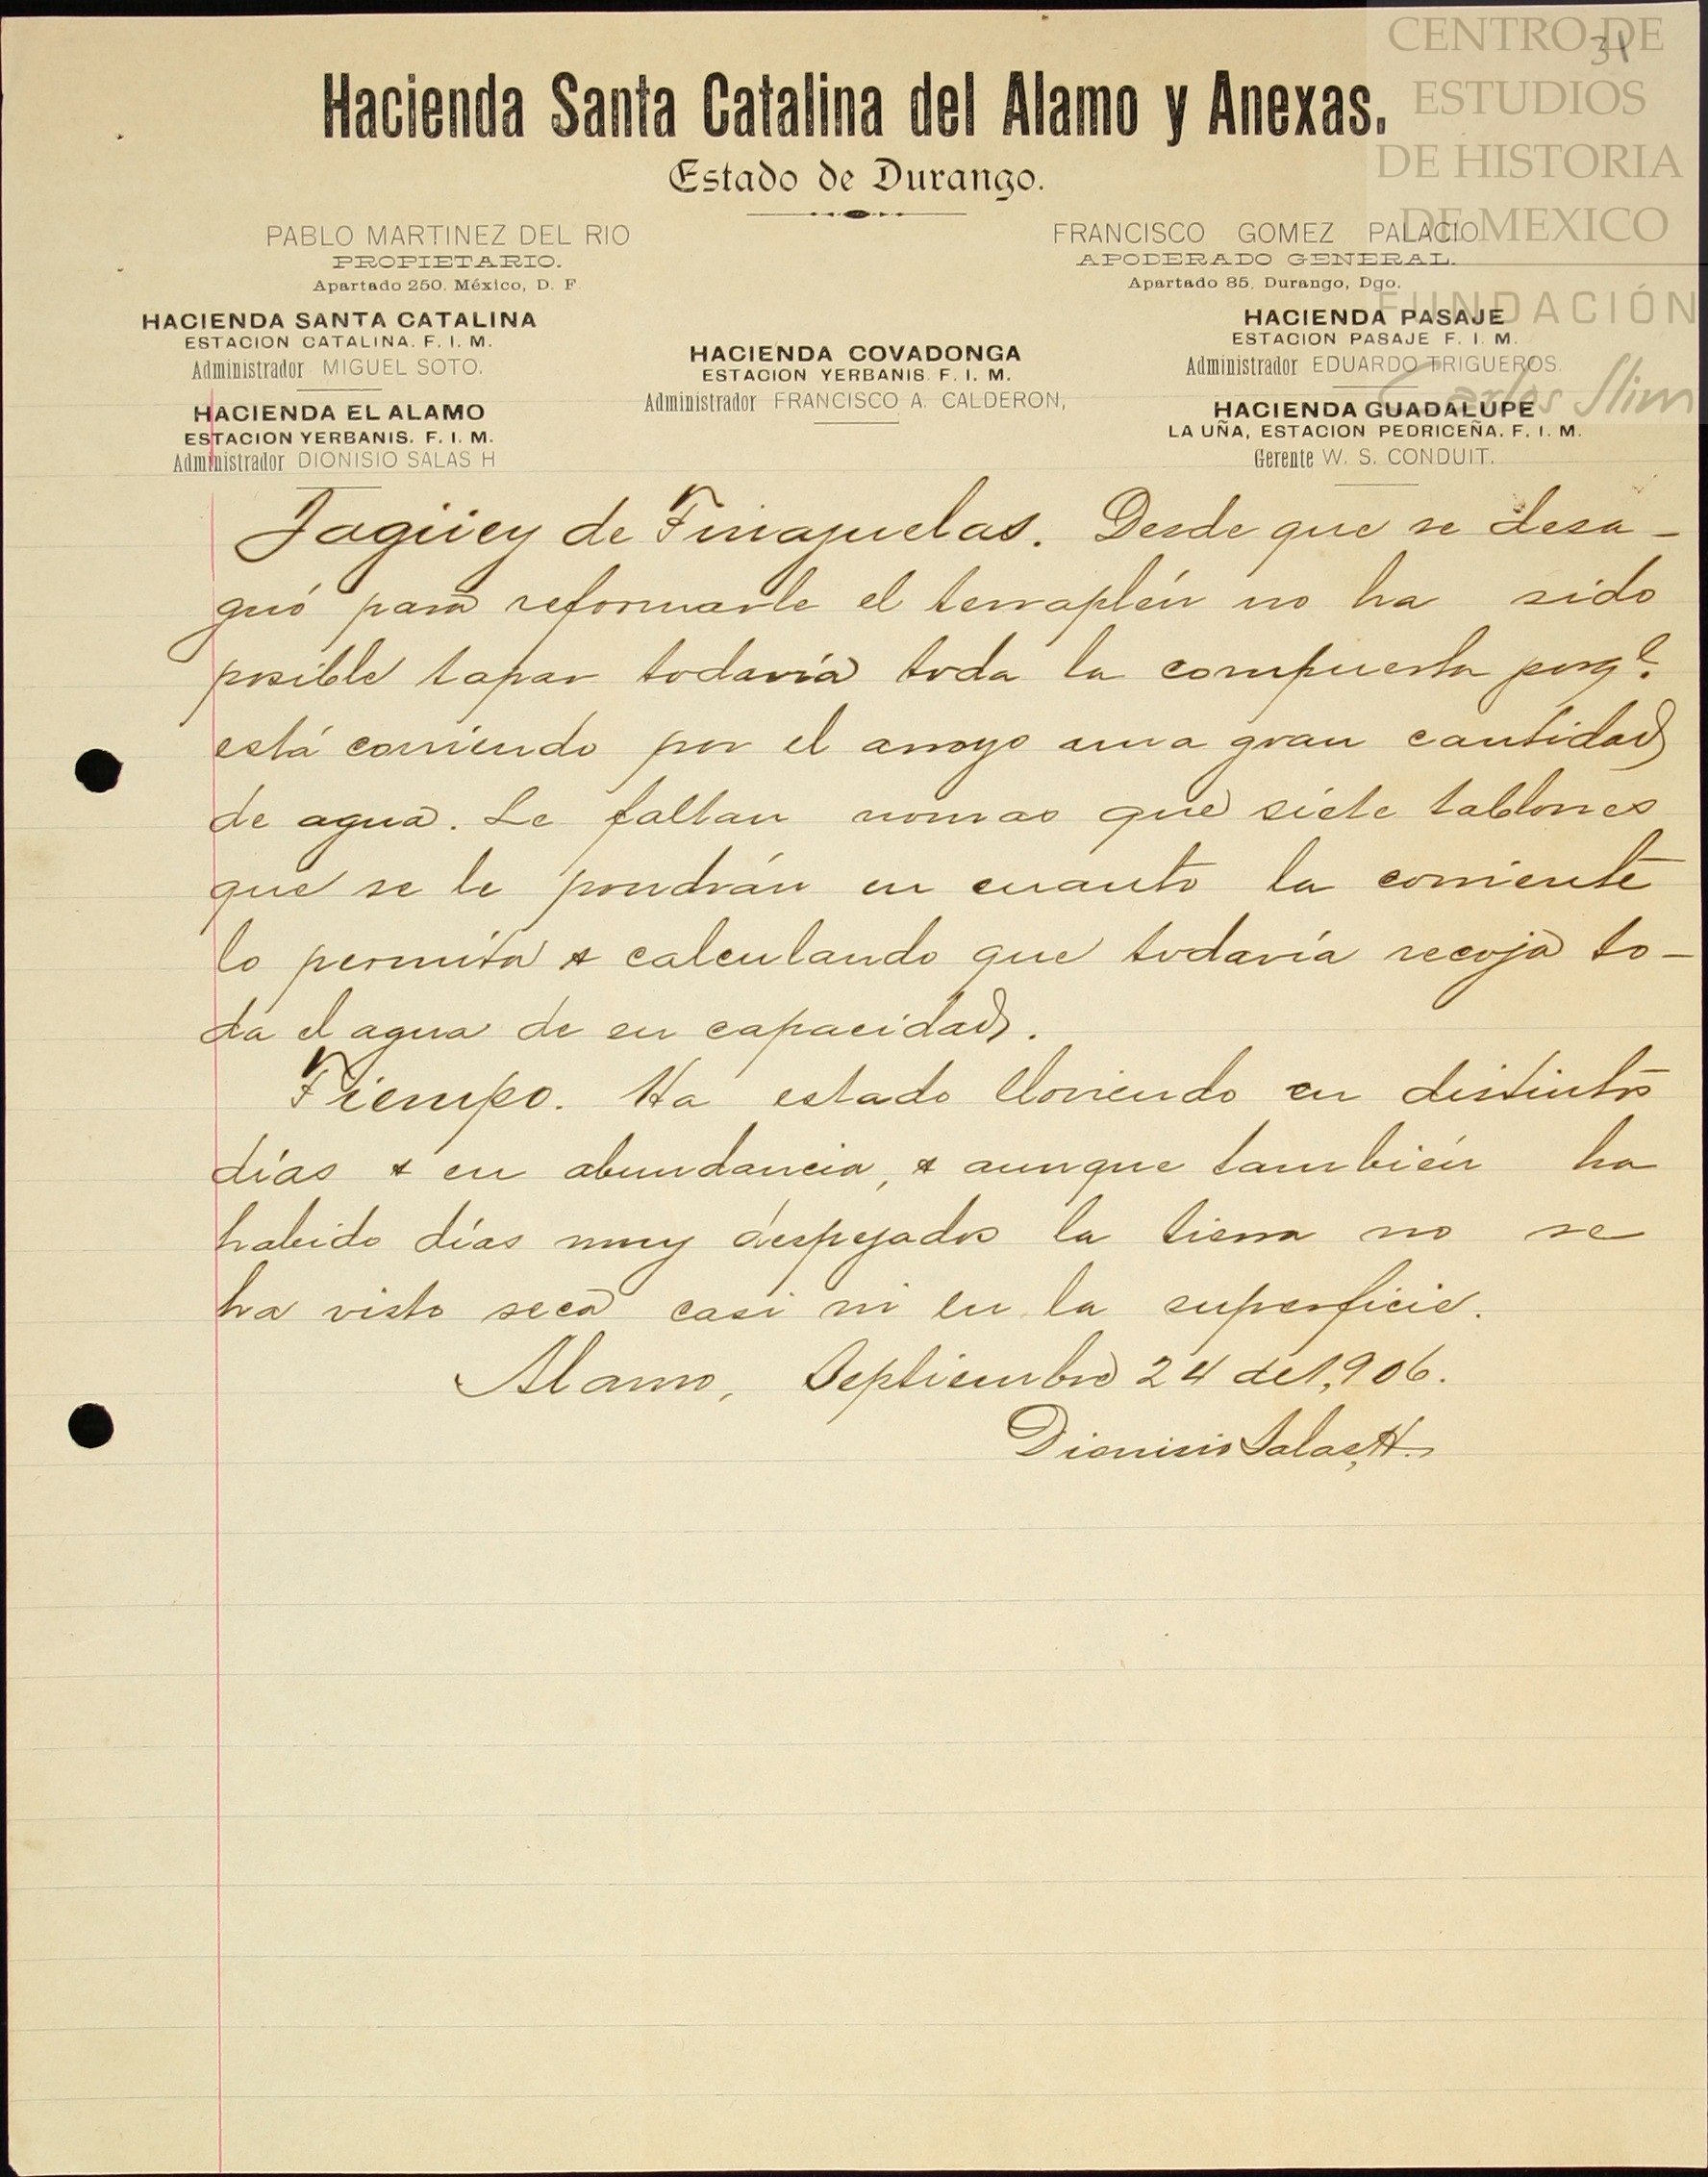 CENTRO DE
ESTUDIOS
DE HISTORIA
DE MEXICO
FUNDACIÓN
Carlos Slim
31
Hacienda Santa Catalina del Alamo y Anexas.
Estado de Durango.
PABLO MARTINEZ DEL RIO
PROPIETARIO.
Apartado 250. México, D. F.
FRANCISCO GOMEZ PALACIO
APODERADO GENERAL.
Apartado 85, Durango, Dgo.
HACIENDA SANTA CATALINA
ESTACION CATALINA. F. I. M.
Administrador MIGUEL SOTO.
HACIENDA EL ALAMO
ESTACION YERBANIS. F. I. M.
Administrador DIONISIO SALAS H
HACIENDA COVADONGA
ESTACION YERBANIS. F. I. M.
Administrador FRANCISCO A. CALDERON,
HACIENDA PASAJE
ESTACION PASAJE F. I. M.
Administrador EDUARDO TRIGUEROS.
HACIENDA GUADALUPE
LA UÑA, ESTACION PEDRICEÑA. F. I. M.
Gerente W. S. CONDUIT.
Jagüey de Tinajuelas. Desde que se desa-
guó para reformarle el terraplén no ha sido
posible tapar todavía toda la compuerta porqe.
está corriendo por el arroyo una gran cantidad
de agua. Le faltan nomas que siete tablones
que se le pondrán en cuanto la corriente
lo permita & calculando que todavía recoja to-
da el agua de su capacidad.
Tiempo. Ha estado lloviendo en distintos
días & en abundancia, & aunque también ha
habido días muy despejados la tierra no se
ha visto seca casi ni en la superficie.
Alamo, Septiembre 24 de 1,906.
Dionisio Salas, H.